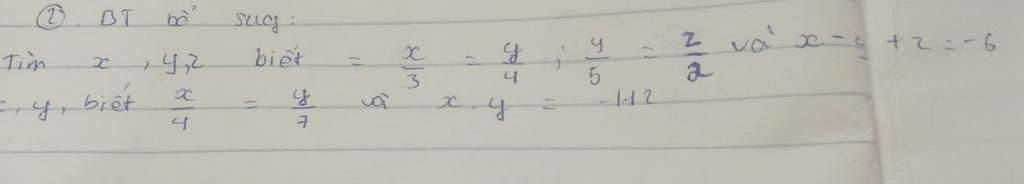 ② . BT bổ sug :
Tìm x , y, z biết = x/3 = y/4 ; y/5 = z/2 và x - y + z = -6
x, y, biết x/4 = y/7 và x . y = -112